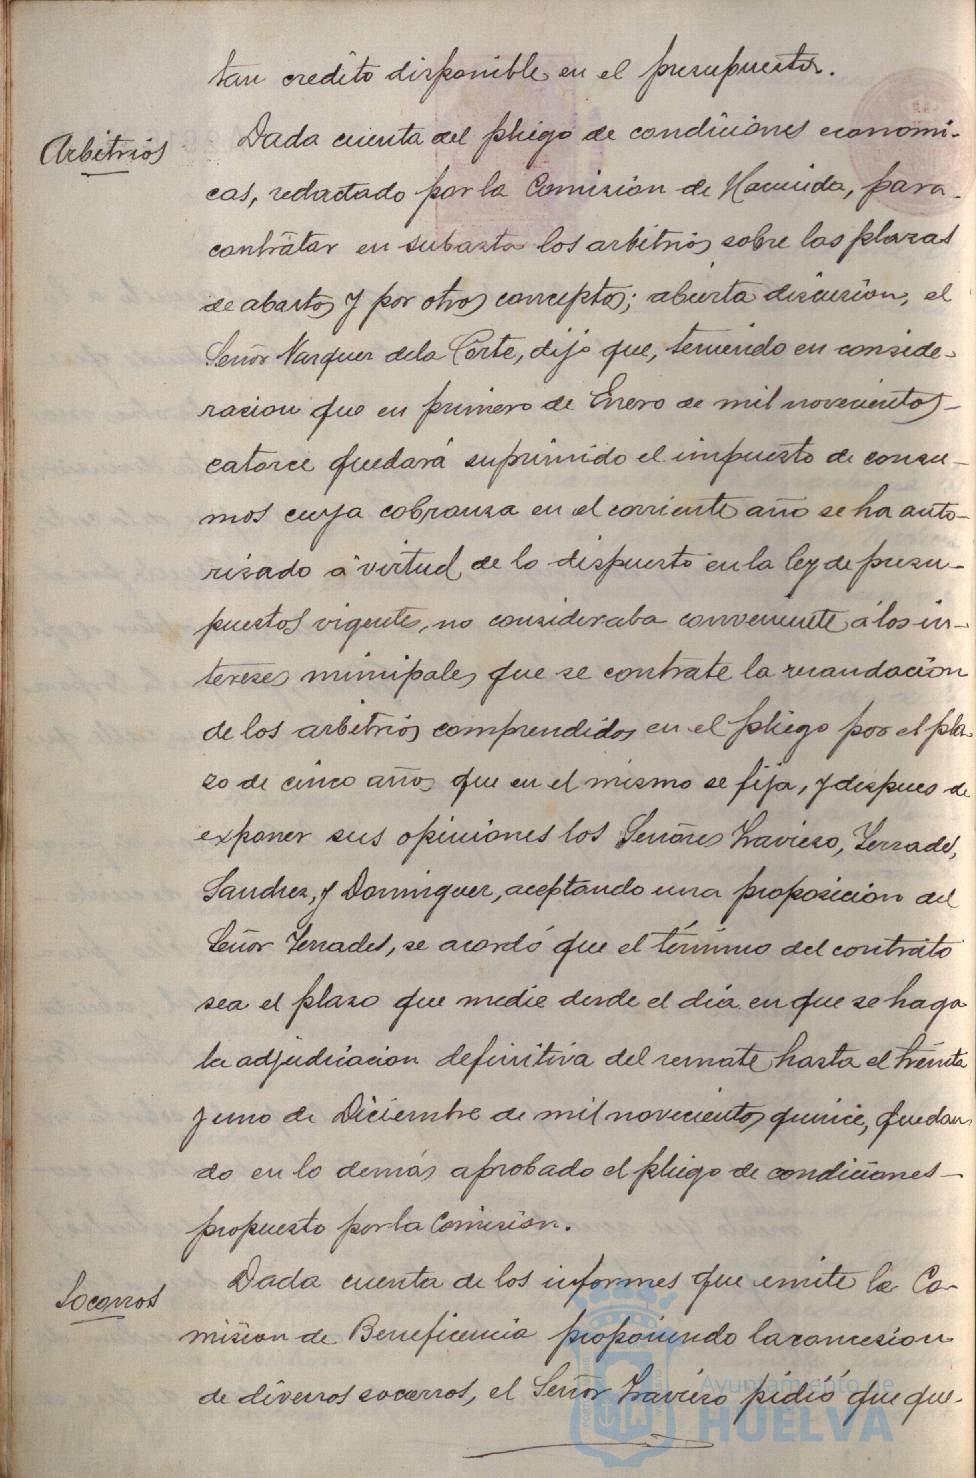 tan credito disponible en el presupuesto.
Arbitrios
Dada cuenta del pliego de condiciones economi-
cas, redactado por la Comision de Hacienda, para
contratar en subasta los arbitrios sobre las plazas
de abastos y por otros conceptos; abierta discusion, el
Señor Vazquez de la Corte, dijo que, teniendo en conside-
racion que en primero de Enero de mil novecientos
catorce quedará suprimido el impuesto de consu-
mos cuya cobranza en el corriente año se ha auto-
rizado á virtud de lo dispuesto en la ley de presu-
puestos vigente, no consideraba conveniente á los in-
tereses minipales que se contrate la recaudacion
de los arbitrios comprendidos en el pliego por el pla-
zo de cinco años que en el mismo se fija, y despues de
exponer sus opiniones los Señores Travieso, Terrades,
Sanchez, y Dominguez, aceptando una proposicion del
Señor Terrades, se acordó que el término del contrato
sea el plazo que medie desde el dia en que se haga
la adjudicacion definitiva del remate hasta el treinta
y uno de Diciembre de mil novecientos quince, quedan-
do en lo demás aprobado el pliego de condiciones
propuesto por la Comision.
Socorros
Dada cuenta de los informes que emite la Co-
mision de Beneficencia proponiendo la concesion
de diversos socorros, el Señor Travieso pidió que que-
Ayuntamiento de
HUELVA